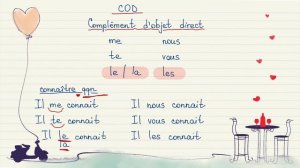 COD
Complément d'objet direct
me nous
te vous
le / la les
connaître qqn
Il me connait Il nous connait
Il te connait Il vous connait
Il le connait Il les connait
la